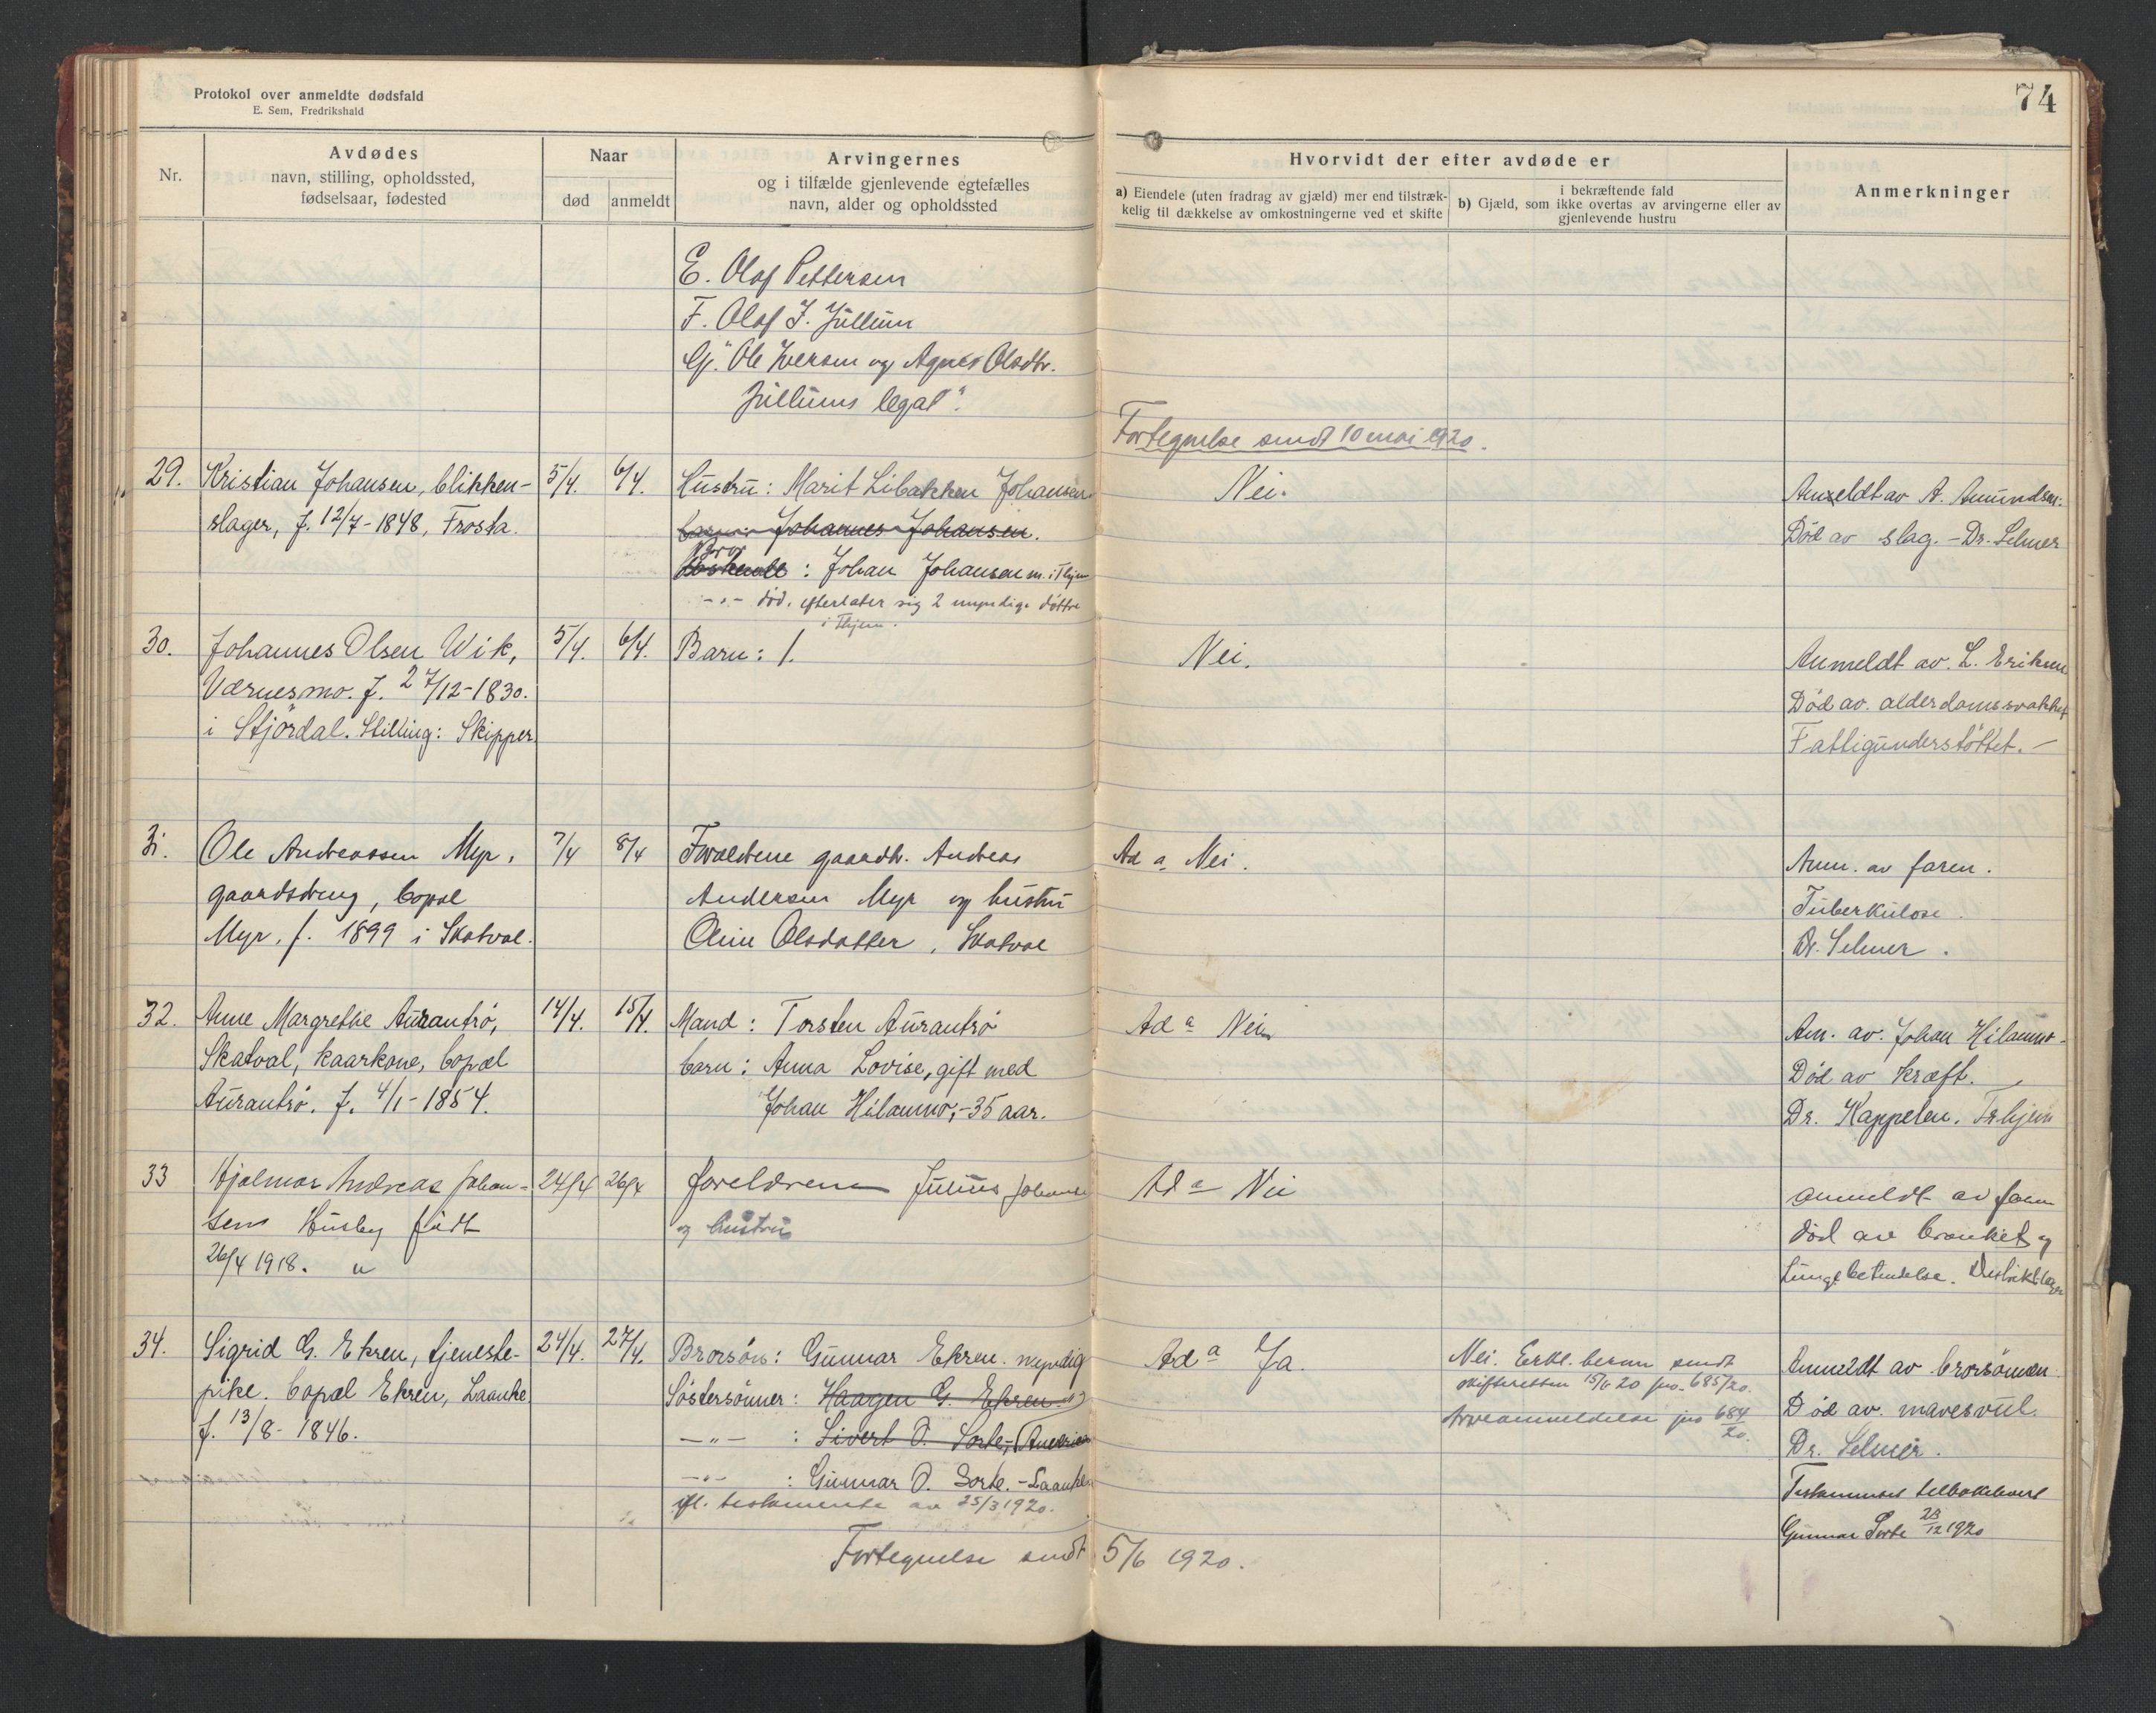 Protokol over anmeldte dødsfald
E. Sem, Fredrikshald
74
Nr.
Avdødes
navn, stilling, opholdssted,
fødselsaar, fødested
Naar
død
anmeldt
Arvingernes
og i tilfælde gjenlevende egtefælles
navn, alder og opholdssted
Hvorvidt der efter avdøde er
a) Eiendele (uten fradrag av gjæld) mer end tilstræk-
kelig til dækkelse av omkostningerne ved et skifte
i bekræftende fald
b) Gjæld, som ikke overtas av arvingerne eller av
gjenlevende hustru
Anmerkninger
E. Olaf Pettersen
F. Olaf J. Jullum
G. "Ole Iversen og Agnes Olsdtr.
Jullums legat".
Fortegnelse sendt 10 mai 1920.
29.
Kristian Johansen, blikken-
slager, f. 12/7-1848, Frosta.
5/4.
6/4.
Hustru: Marit Libakken Johansen
barn: Johannes Johansen.
Bror
: Johan Johansen m. i Thjem
-"- død, efterlater sig 2 umyndige døttre
i Thjem.
Nei.
Anmeldt av A. Amundsen.
Død av slag. - Dr. Selmer
30.
Johannes Olsen Wik,
Værnesmo. f. 27/12-1830.
i Stjørdal. Stilling: Skipper.
5/4.
6/4.
Barn: 1.
Nei.
Anmeldt av. L. Eriksen
Død av. alderdomssvakhet
Fattigunderstøttet. -
31.
Ole Andreassen Myr,
gaardsdreng, bopæl
Myr, f. 1899 i Skatval.
7/4
8/4
Forældrene gaardbr. Andreas
Andersen Myr og hustru
Oline Olsdatter, Skatval
Ad a. Nei.
Anm. av faren.
Tuberkulose.
Dr. Selmer.
32.
Anne Margrethe Aurantrø,
Skatval, kaarkone, bopæl
Aurantrø. f. 4/1-1854.
14/4.
15/4.
Mand: Torsten Aurantrø
barn: Anna Lovise, gift med
Johan Hilammo, -35 aar.
Ad a Nei
Am. av. Johan Hilammo.
Død av kræft.
Dr. Kappelen. Tr.hjem
33
Hjalmar Andreas Johan-
sen Husby født
26/4 1918.
24/4
26/4
foreldrene Julius Johansen
og hustru
Ad a Nei
anmeldt av faren
død av bronkit og
Lungebetændelse. Distriktslægen
34.
Sigrid G. Ekren, tjeneste-
pike. bopæl Ekren, Laanke
f. 13/8-1846.
24/4.
27/4.
Brorsøn: Gunnar Ekren. myndig
Søstersønner: Haagen G. Ekren
-"- : Sivert O. Sorte, Amerika
-"- : Gunnar O. Sorte. - Laanke
ifl. testamente av 25/3 1920.
Ad a Ja.
Nei. Erkl. herom sendt
skifteretten 15/6 20 jno. 685/20.
Arveanmeldelse jno 684/20.
Anmeldt av brorsønnen.
Død av. mavesvul.
Dr. Selmer.
Testamentet tilbakelevert
Gunnar Sorte 23/12 1920
Fortegnelse sendt 5/6 1920.